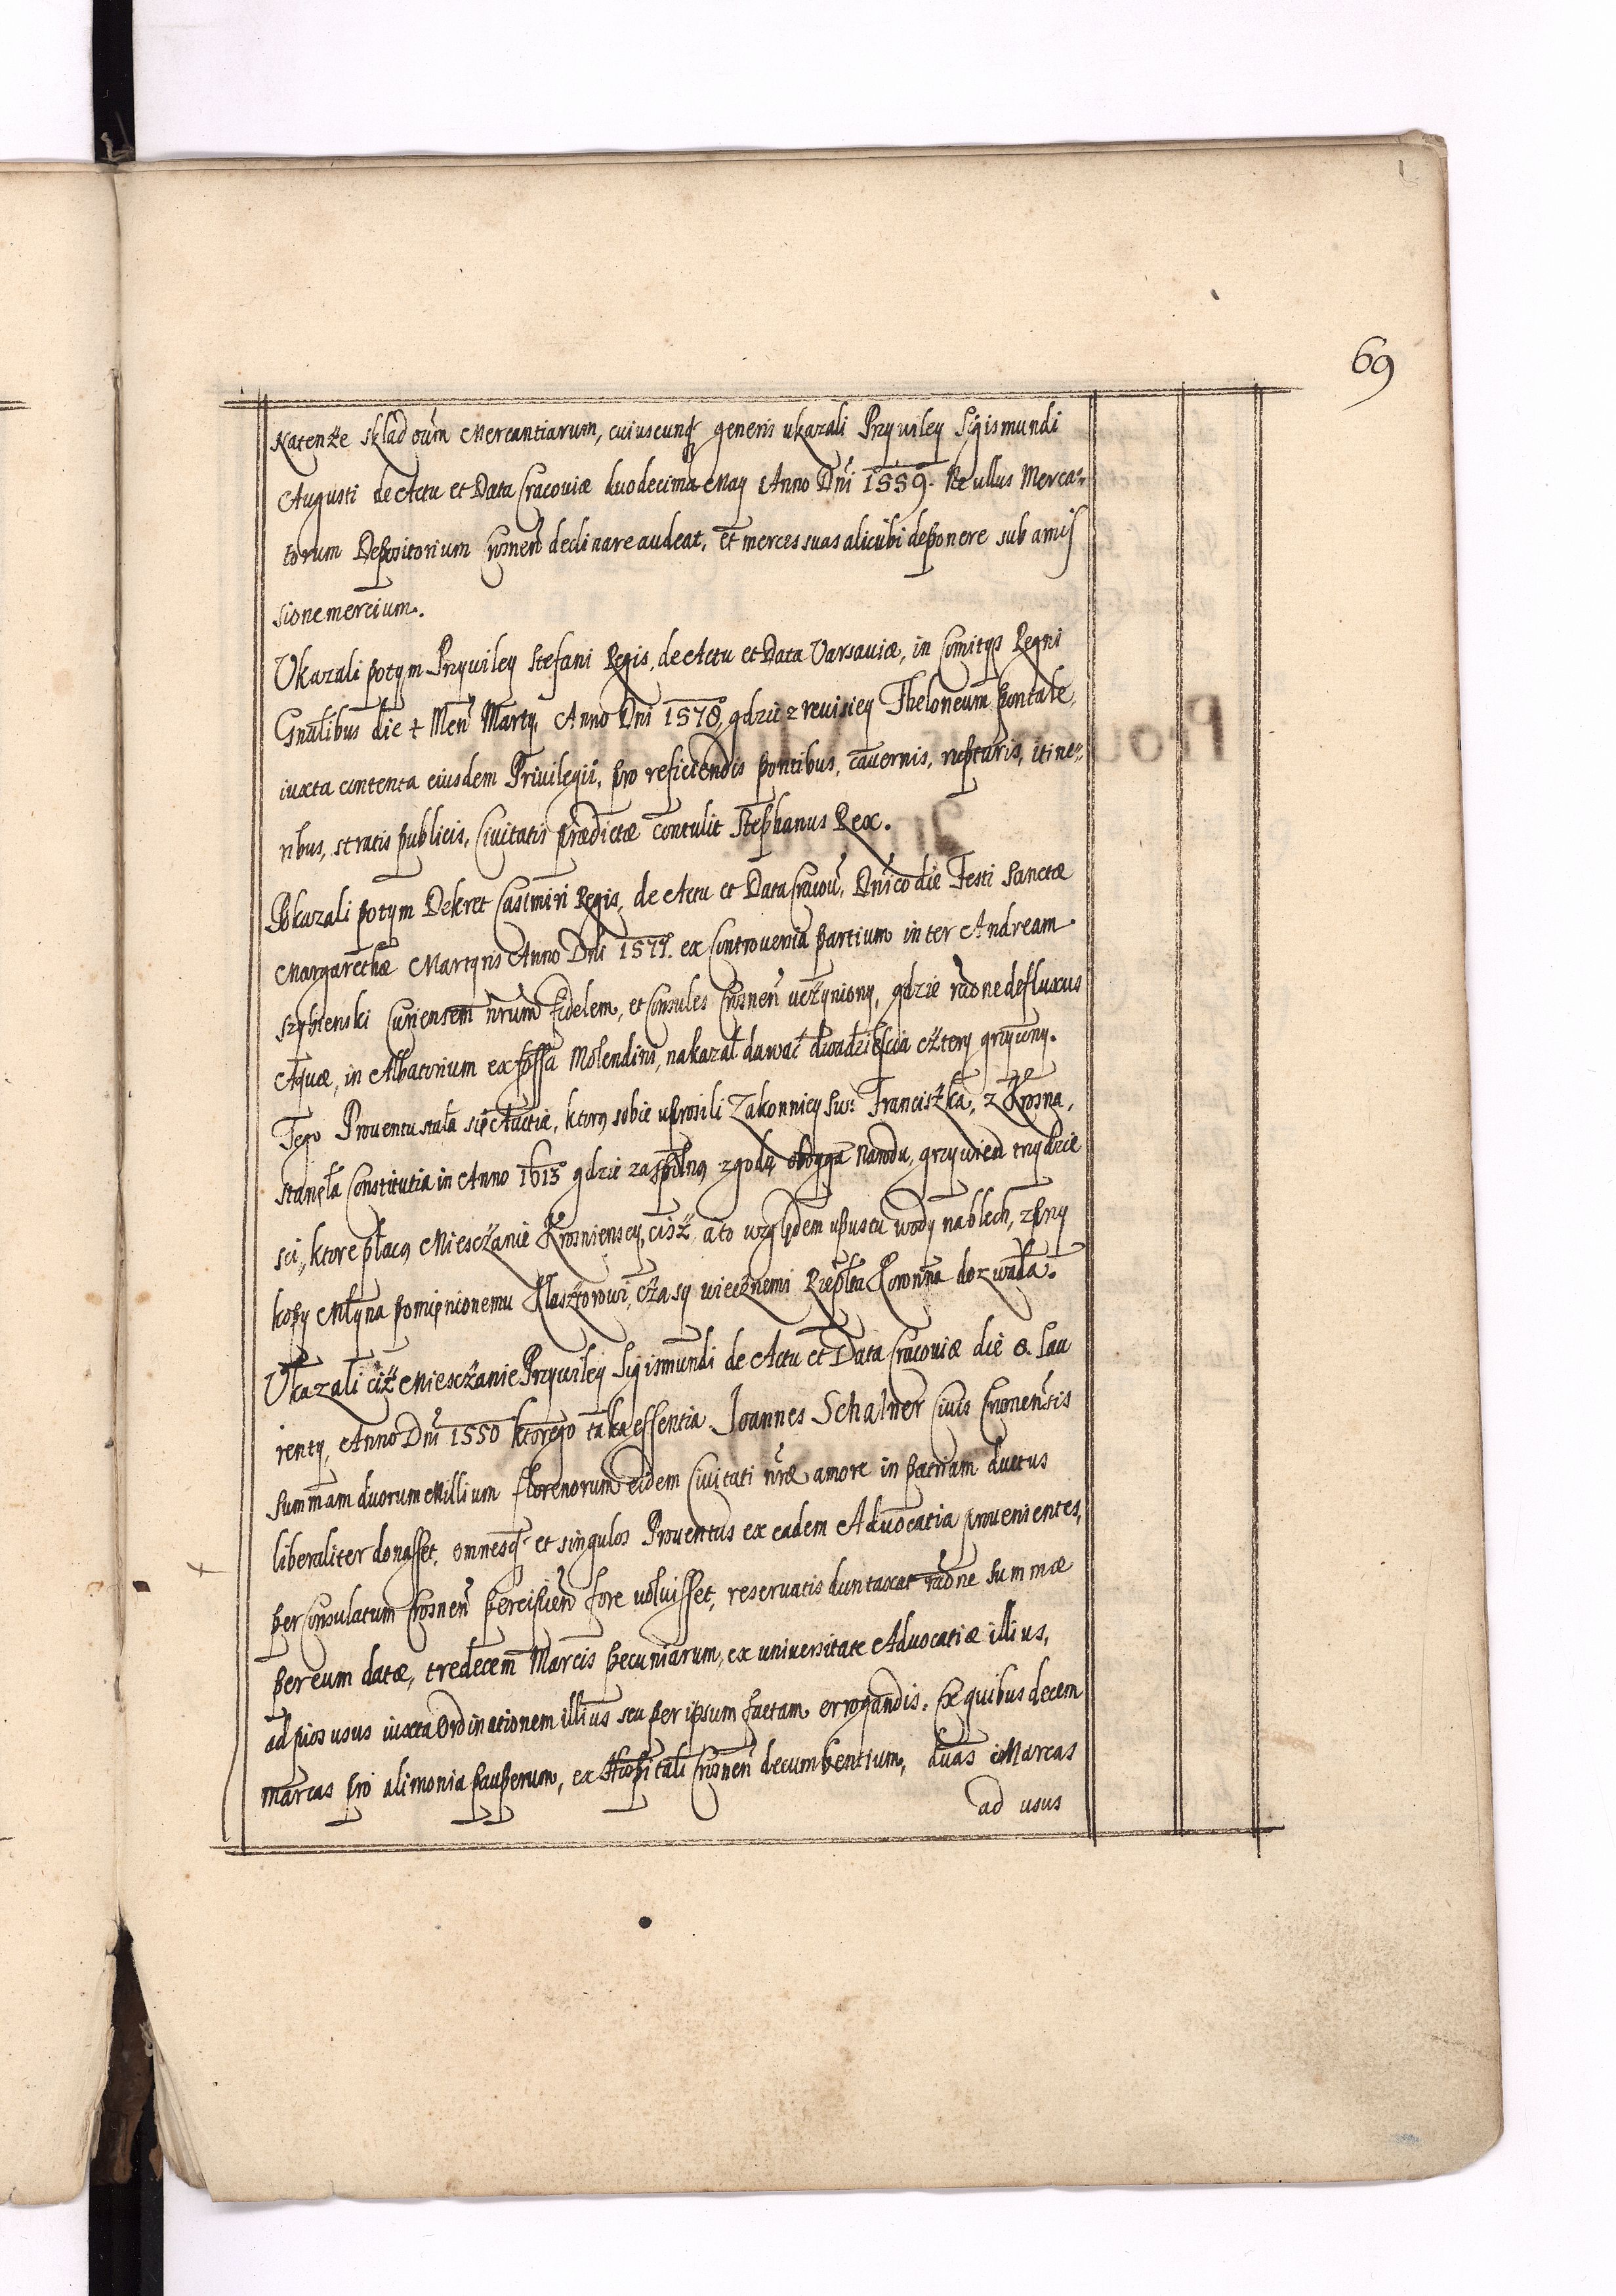 69
Natenże skład oum̃ Mercantiarum, cuiuscunq generis ukazali Przywiley Sigismundi
Augusti de Actu et Data Cracoviæ duodecima May Anno Dni 1559. Ne ullus Merca-
torum Depositorium Crosneñ declinare audeat, et merces suas alicubi deponere sub amis
sione mercium.
Ukazali potym Przywiley Stefani Regis, de Actu et Data Varsaviæ, in Comitys Regni
Gnalibus die 7 Meñ Marty, Anno Dni 1578, gdzie z rewisiey Theloneum pontale,
iuxta contenta eiusdem Privilegii, pro reficiendis pontibus, cavernis, rupturis, itine-
ribus, stratis publicis, Civitatis prædictæ contulit Stephanus Rex.
Pokazali potym Dekret Casimiri Regis, de Actu et Data Cracou, Dnico die Festi Sanctæ
Margarethæ Martyris Anno Dni 1577. ex Controversia partium inter Andream
Szybienski Curiensem nrum fidelem, et Consules Crosneñ uczyniony, gdzie raōne defluxus
Aquæ, in Albatorium ex fossa Molendini, nakazał dawać dwadzieścia cztery grzywny.
Tego Proventu stała się Auctia, ktorą sobie uprosili Zakonnicy Sw: Franciszka, z Krosna,
stanęła Constitutia in Anno 1613 gdzie za spolną zgodą oboyga Narodu, grzywien trzydzie
sci, ktore płacą Miesczanie Krosnienscy, ciż, a to względem upustu wody na blech, z przy
kopy Młyna pomienionemu Klasztorowi, czasy wiecznemi Rzepłta Koronna dozwala.
Ukazali ciż Miesczanie Przywiley Sigismundi de Actu et Data Cracoviæ die 8. Lau
renty, Anno Dni 1550 ktorego taka essentia. Joannes Schalner Civis Crosnensis
summam duorum Millium florenorum eidem Civitati nræ amore in patriam ductus
liberaliter donasset, omnesq et singulos Proventus ex eadem Advocatia provenientes,
per Consulatum Crosneñ percipieñ fore voluisset, reservatis duntaxat raōne summæ
per eum datæ, tredecem Marcis pecuniarum, ex universitate Advocatiæ illius,
ad pios usus iuxta Ordinationem illius seu per ipsum factam errogandis. Ex quibus decem
marcas pro alimonia pauperum, ex Hospitali Crosneñ decumbentium, duas Marcas
ad usus